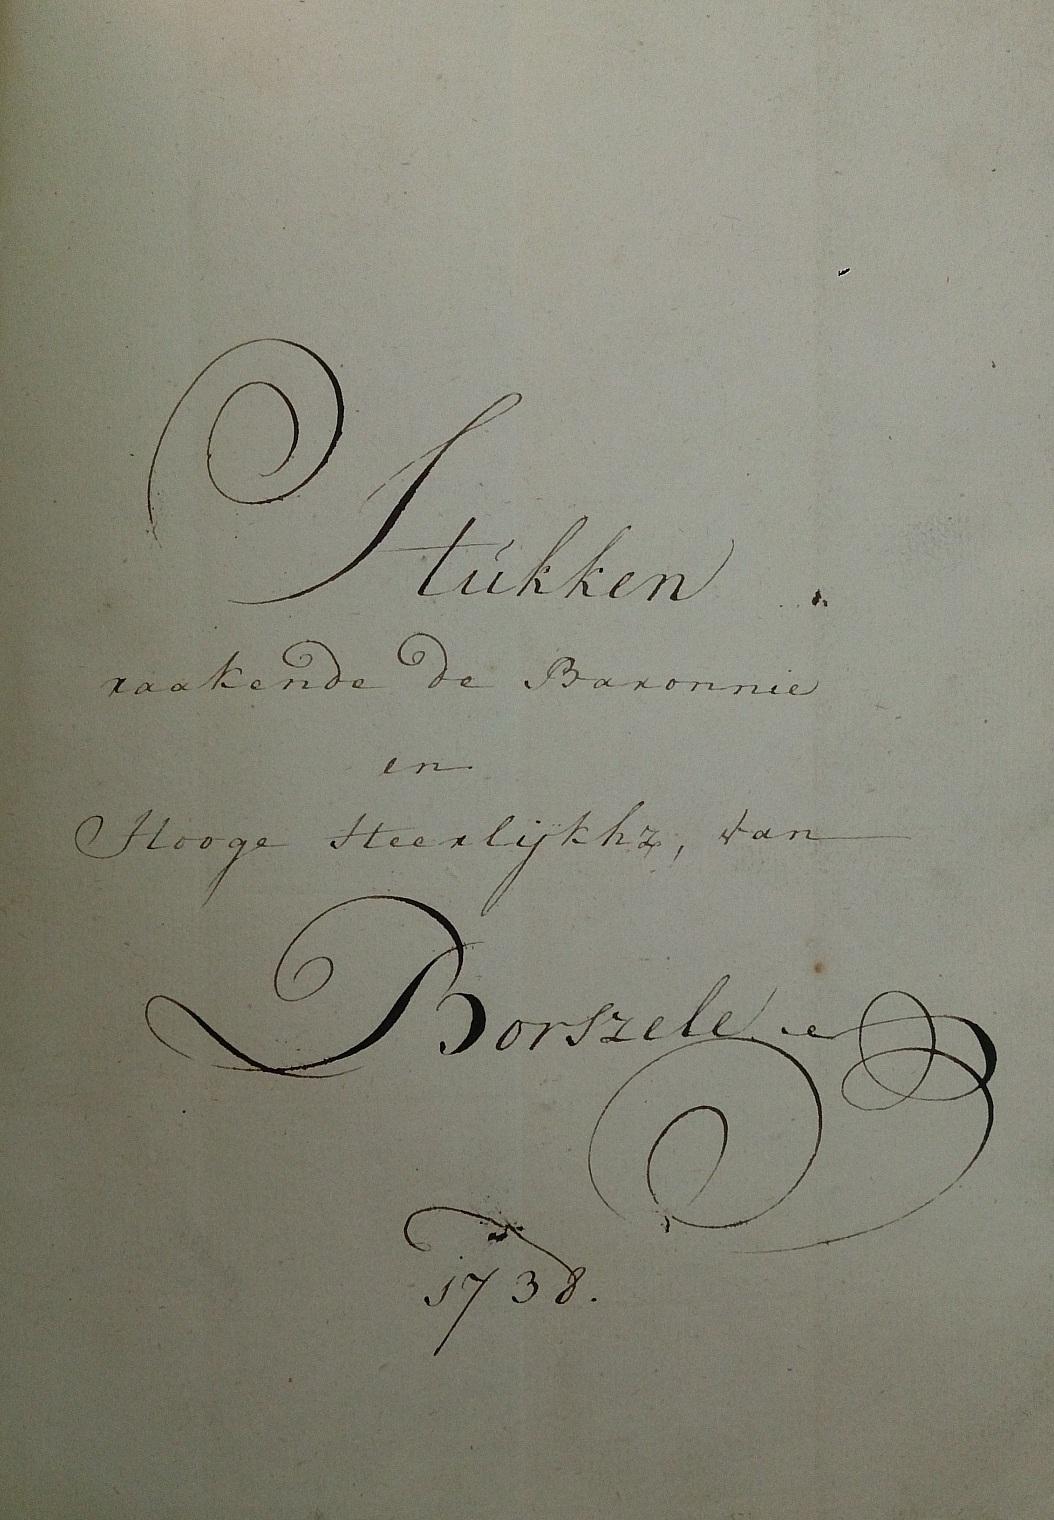 Stukken
raakende de Baronnie
en
Hooge Heerlijkhz, van
Borszele
1738.